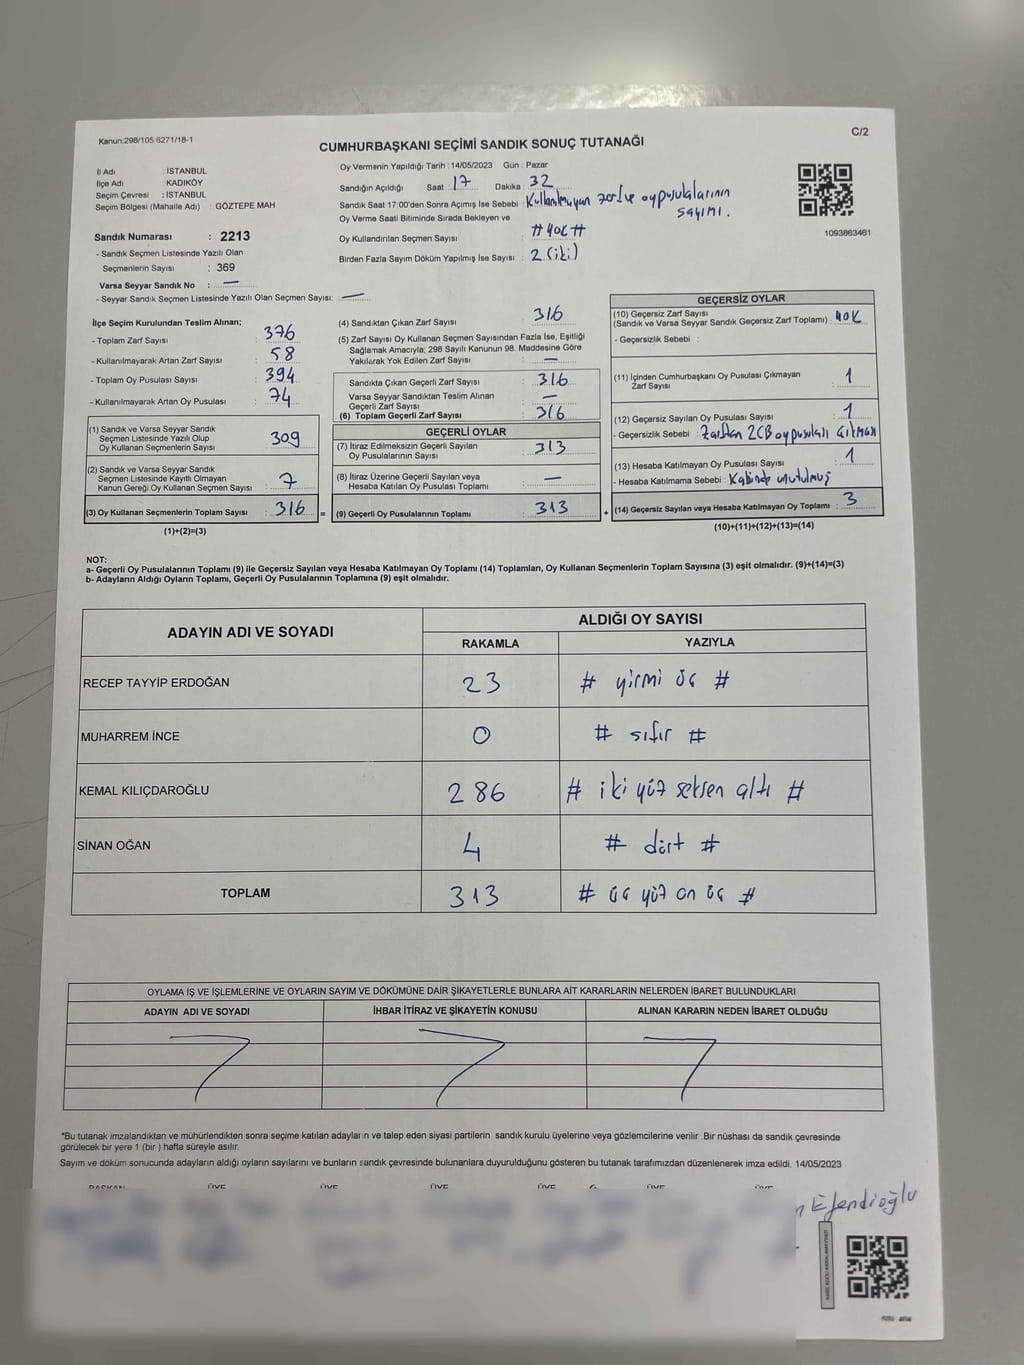 Kanun:298/105 6271/18-1
C/2
CUMHURBAŞKANI SEÇİMİ SANDIK SONUÇ TUTANAĞI
İl Adı : İSTANBUL
İlçe Adı : KADIKÖY
Seçim Çevresi : İSTANBUL
Seçim Bölgesi (Mahalle Adı) : GÖZTEPE MAH.
Sandık Numarası : 2213
- Sandık Seçmen Listesinde Yazılı Olan
Seçmenlerin Sayısı : 369
Varsa Seyyar Sandık No : —
- Seyyar Sandık Seçmen Listesinde Yazılı Olan Seçmen Sayısı: —
Oy Vermenin Yapıldığı Tarih : 14/05/2023 Gün : Pazar
Sandığın Açıldığı Saat 17 Dakika : 32
Sandık Saat 17:00'den Sonra Açılmış İse Sebebi : Kullanılmayan zarf ve oy pusulalarının
sayımı.
Oy Verme Saati Bitiminde Sırada Bekleyen ve
Oy Kullandırılan Seçmen Sayısı : #YOK#
Birden Fazla Sayım Döküm Yapılmış İse Sayısı : 2 (iki)
1093863461
İlçe Seçim Kurulundan Teslim Alınan;
- Toplam Zarf Sayısı : 376
- Kullanılmayarak Artan Zarf Sayısı : 58
- Toplam Oy Pusulası Sayısı : 394
- Kullanılmayarak Artan Oy Pusulası : 74
(1) Sandık ve Varsa Seyyar Sandık
Seçmen Listesinde Yazılı Olup
Oy Kullanan Seçmenlerin Sayısı : 309
(2) Sandık ve Varsa Seyyar Sandık
Seçmen Listesinde Kayıtlı Olmayan
Kanun Gereği Oy Kullanan Seçmen Sayısı : 7
(3) Oy Kullanan Seçmenlerin Toplam Sayısı : 316
(1)+(2)=(3)
(4) Sandıktan Çıkan Zarf Sayısı : 316
(5) Zarf Sayısı Oy Kullanan Seçmen Sayısından Fazla İse, Eşitliği
Sağlamak Amacıyla; 298 Sayılı Kanunun 98. Maddesine Göre
Yakılarak Yok Edilen Zarf Sayısı : —
Sandıkta Çıkan Geçerli Zarf Sayısı : 316
Varsa Seyyar Sandıktan Teslim Alınan
Geçerli Zarf Sayısı : —
(6) Toplam Geçerli Zarf Sayısı : 316
GEÇERLİ OYLAR
(7) İtiraz Edilmeksizin Geçerli Sayılan
Oy Pusulalarının Sayısı : 313
(8) İtiraz Üzerine Geçerli Sayılan veya
Hesaba Katılan Oy Pusulası Toplamı : —
= (9) Geçerli Oy Pusulalarının Toplamı : 313
GEÇERSİZ OYLAR
(10) Geçersiz Zarf Sayısı
(Sandık ve Varsa Seyyar Sandık Geçersiz Zarf Toplamı) : YOK
- Geçersizlik Sebebi :
(11) İçinden Cumhurbaşkanı Oy Pusulası Çıkmayan
Zarf Sayısı : 1
(12) Geçersiz Sayılan Oy Pusulası Sayısı : 1
- Geçersizlik Sebebi : Zarftan 2CB oy pusulası çıkması
(13) Hesaba Katılmayan Oy Pusulası Sayısı : 1
- Hesaba Katılmama Sebebi : Kabinde unutulmuş
+ (14) Geçersiz Sayılan veya Hesaba Katılmayan Oy Toplamı : 3
(10)+(11)+(12)+(13)=(14)
NOT:
a- Geçerli Oy Pusulalarının Toplamı (9) ile Geçersiz Sayılan veya Hesaba Katılmayan Oy Toplamı (14) Toplamları, Oy Kullanan Seçmenlerin Toplam Sayısına (3) eşit olmalıdır. (9)+(14)=(3)
b- Adayların Aldığı Oyların Toplamı, Geçerli Oy Pusulalarının Toplamına (9) eşit olmalıdır.
ADAYIN ADI VE SOYADI
ALDIĞI OY SAYISI
RAKAMLA YAZIYLA
RECEP TAYYİP ERDOĞAN 23 # yirmi üç #
MUHARREM İNCE 0 # sıfır #
KEMAL KILIÇDAROĞLU 286 # iki yüz seksen altı #
SİNAN OĞAN 4 # dört #
TOPLAM 313 # üç yüz on üç #
OYLAMA İŞ VE İŞLEMLERİNE VE OYLARIN SAYIM VE DÖKÜMÜNE DAİR ŞİKAYETLERLE BUNLARA AİT KARARLARIN NELERDEN İBARET BULUNDUKLARI
ADAYIN ADI VE SOYADI İHBAR İTİRAZ VE ŞİKAYETİN KONUSU ALINAN KARARIN NEDEN İBARET OLDUĞU
*Bu tutanak imzalandıktan ve mühürlendikten sonra seçime katılan adayların ve talep eden siyasi partilerin sandık kurulu üyelerine veya gözlemcilerine verilir .Bir nüshası da sandık çevresinde
görülecek bir yere 1 (bir ) hafta süreyle asılır.
Sayım ve döküm sonucunda adayların aldığı oyların sayılarını ve bunların sandık çevresinde bulunanlara duyurulduğunu gösteren bu tutanak tarafımızdan düzenlenerek imza edildi. 14/05/2023
BAŞKAN ÜYE ÜYE ÜYE ÜYE ÜYE ÜYE
Efendioğlu